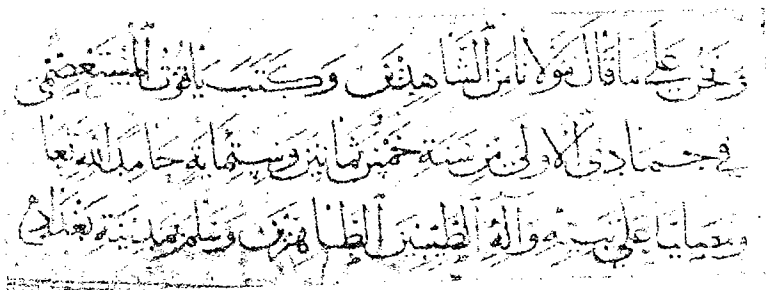 ونحن على ما قال مولانا من الشاهدين وكتب ياقوت المستعصمي
في جمادى الاولى من سنة خمس ثمانين وستمائة حامدا لله تعا
ومصليا على نبيه واله الطيبين الطاهرين وسلم بمدينة بغداد